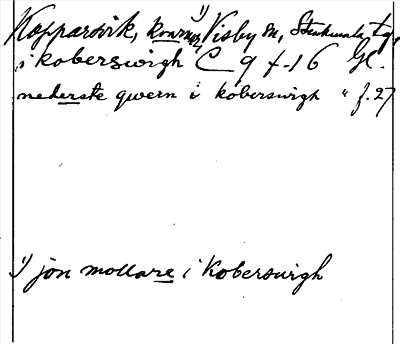 Kopparsvik, kvarn, Visby sn, Stenkumla tg.
i koberswigh C 9 f. 16 Gl.
nederste qwern i koberswigh " f. 27
1) jon mollare i Koberswigh